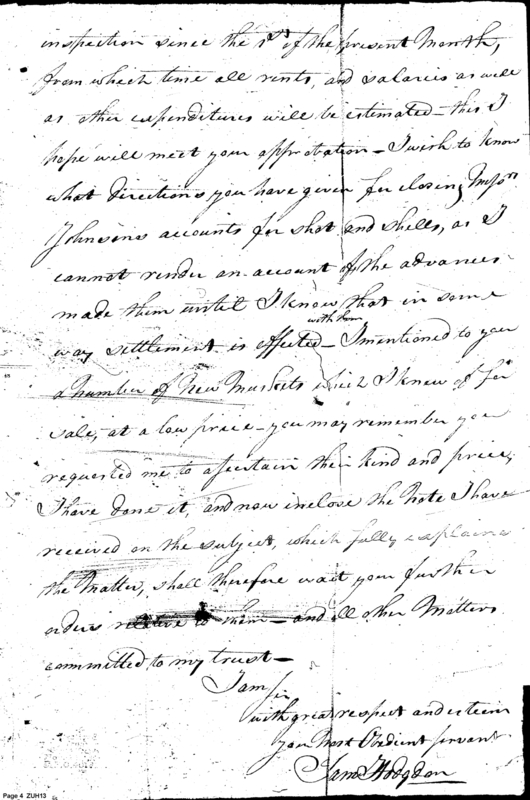 inspection since the 1st of the present Month,
from which time all rents, and salaries as well
as other expenditures will be estimated – this I
hope will meet your approbation – I wish to know
what directions you have given for closing Messrs
Johnsons accounts for shot and shells, as I
cannot render an account of the advances
made them until I know that in some
with them
way settlement is effected – I mentioned to you
a number of New Muskets which I knew of for
sale, at a low price – you may remember you
requested me to ascertain their kind and price,
I have done it, and now inclose the Note I have
received on the subject, which fully explains
the Matter, shall therefore wait your further
orders relative to them – and all other Matters
committed to my trust –
I am Sir
with great respect and esteem
your Most Obedient servant
Saml Hodgdon
Page 4 ZUH13